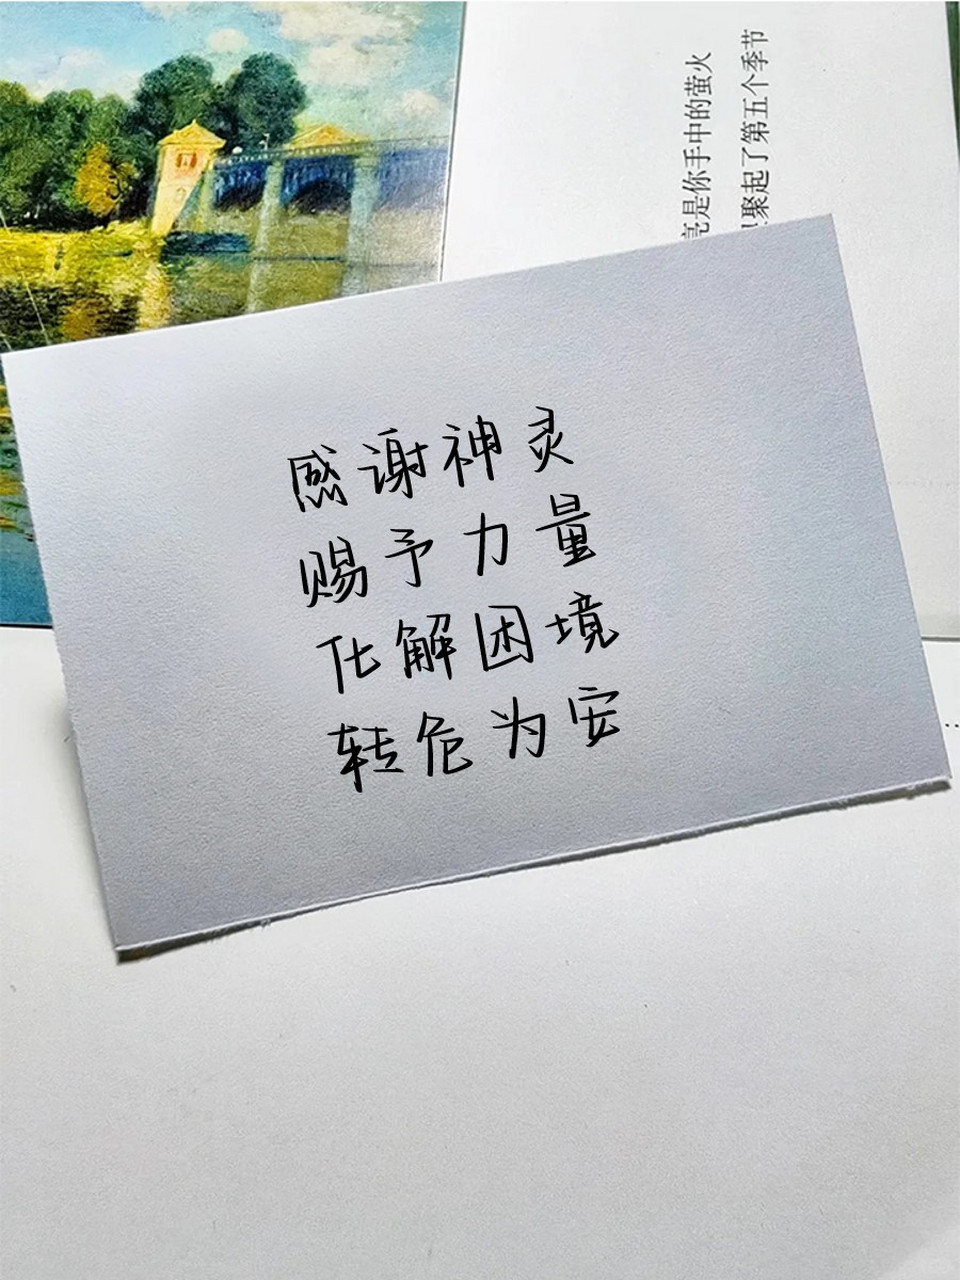 感谢神灵
赐予力量
化解困境
转危为安
亮是你手中的萤火
聚起了第五个季节